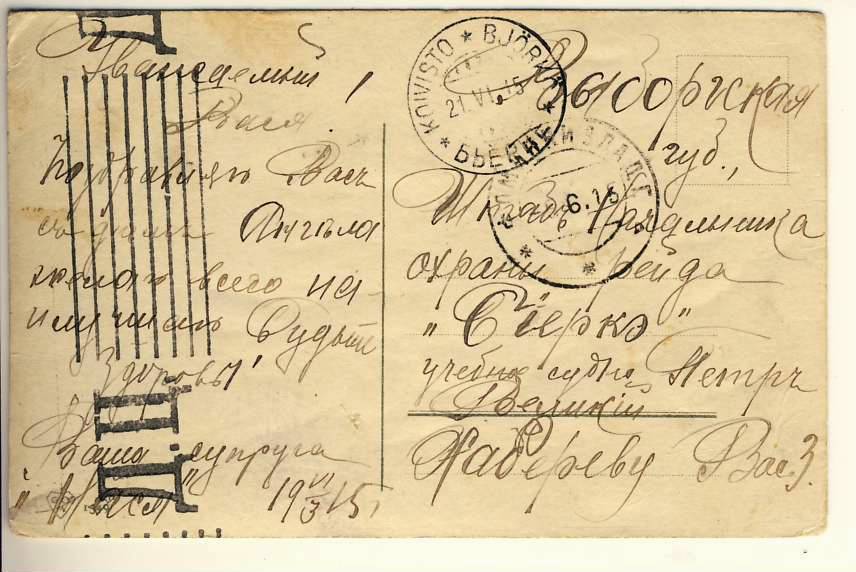 Уважаемый!
Вася!
Поздравляю Васъ
съ днемъ Ангела
желаю всего на-
илучшаго Будьте
Здоровы!
Ваша супруга
19 VI/3 15
KOIVISTO * BJÖRKÖ *
21.VI.15
Выборгская
губ.,
6.15
Штабъ Начальника
охраны рейда
учебное судно Петръ
Великій
Хабереву Вас. З.